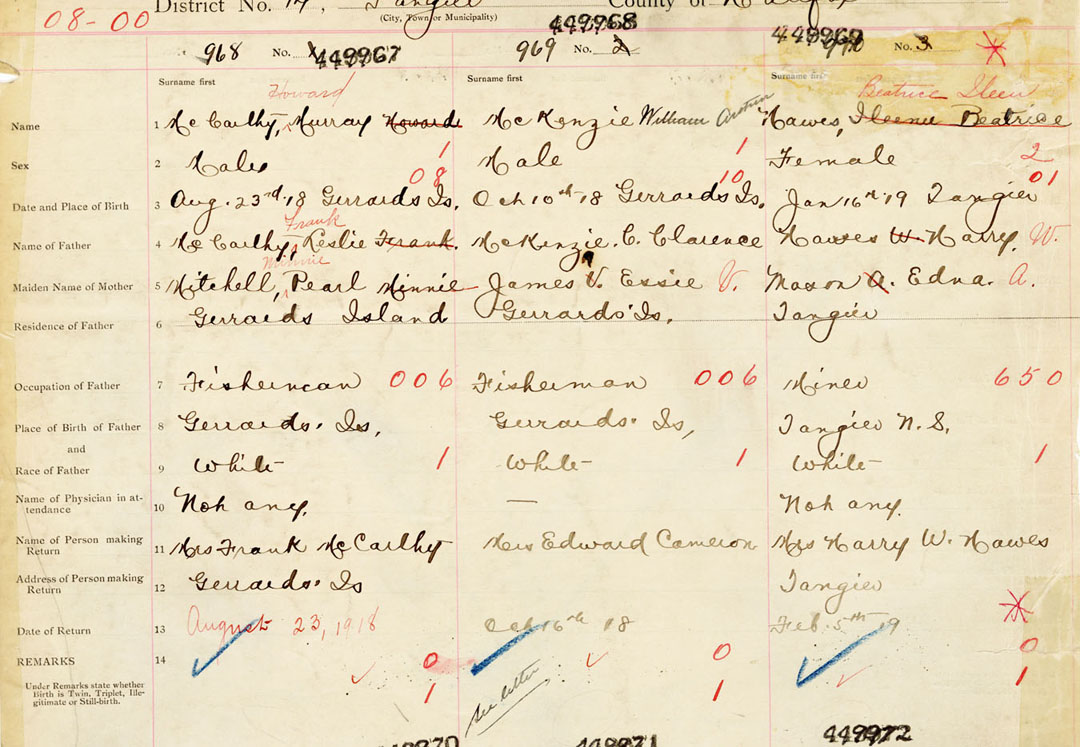 District No. 14, Tangier County of Halifax
(City, Town or Municipality)
08-00
449968
968 No. 1 449967 969 No. 2 449969 970 No. 3
Surname first Surname first Surname first
Howard Beatrice Ileen
Name 1 McCarthy, Murray Howard McKenzie William Arthur Hawes, Ileenu Beatrice
1 1 2
Sex 2 Male Male Female
08 10 01
Date and Place of Birth 3 Aug. 23rd, 18 Gerrards Is. Oct 10th 18 Gerrards Is. Jan 16th 19 Tangier
Frank
Name of Father 4 McCarthy, Leslie Frank. McKinzie. C. Clarence Hawes W. Harry. W.
Minnie
Maiden Name of Mother 5 Mitchell, Pearl Minnie James V. Essie V. Mason A. Edna. A.
Residence of Father 6 Gerrards Island Gerrards Is. Tangier
Occupation of Father 7 Fisherman 006 Fisherman 006 Miner 650
Place of Birth of Father 8 Gerrards. Is, Gerrards. Is, Tangier N.S.
and
Race of Father 9 White 1 White 1 White 1
Name of Physician in at-
tendance 10 Not any. — Not any.
Name of Person making
Return 11 Mrs Frank McCarthy Mrs Edward Cameron Mrs Harry W. Hawes
Address of Person making
Return 12 Gerrards. Is Tangier
Date of Return 13 August 23, 1918 Oct 16th 18 Feb. 5th 19
REMARKS 14 0 0 0
Under Remarks state whether
Birth is Twin, Triplet, Ille-
gitimate or Still-birth.
1 see letter 1 1
449970 449971 449972